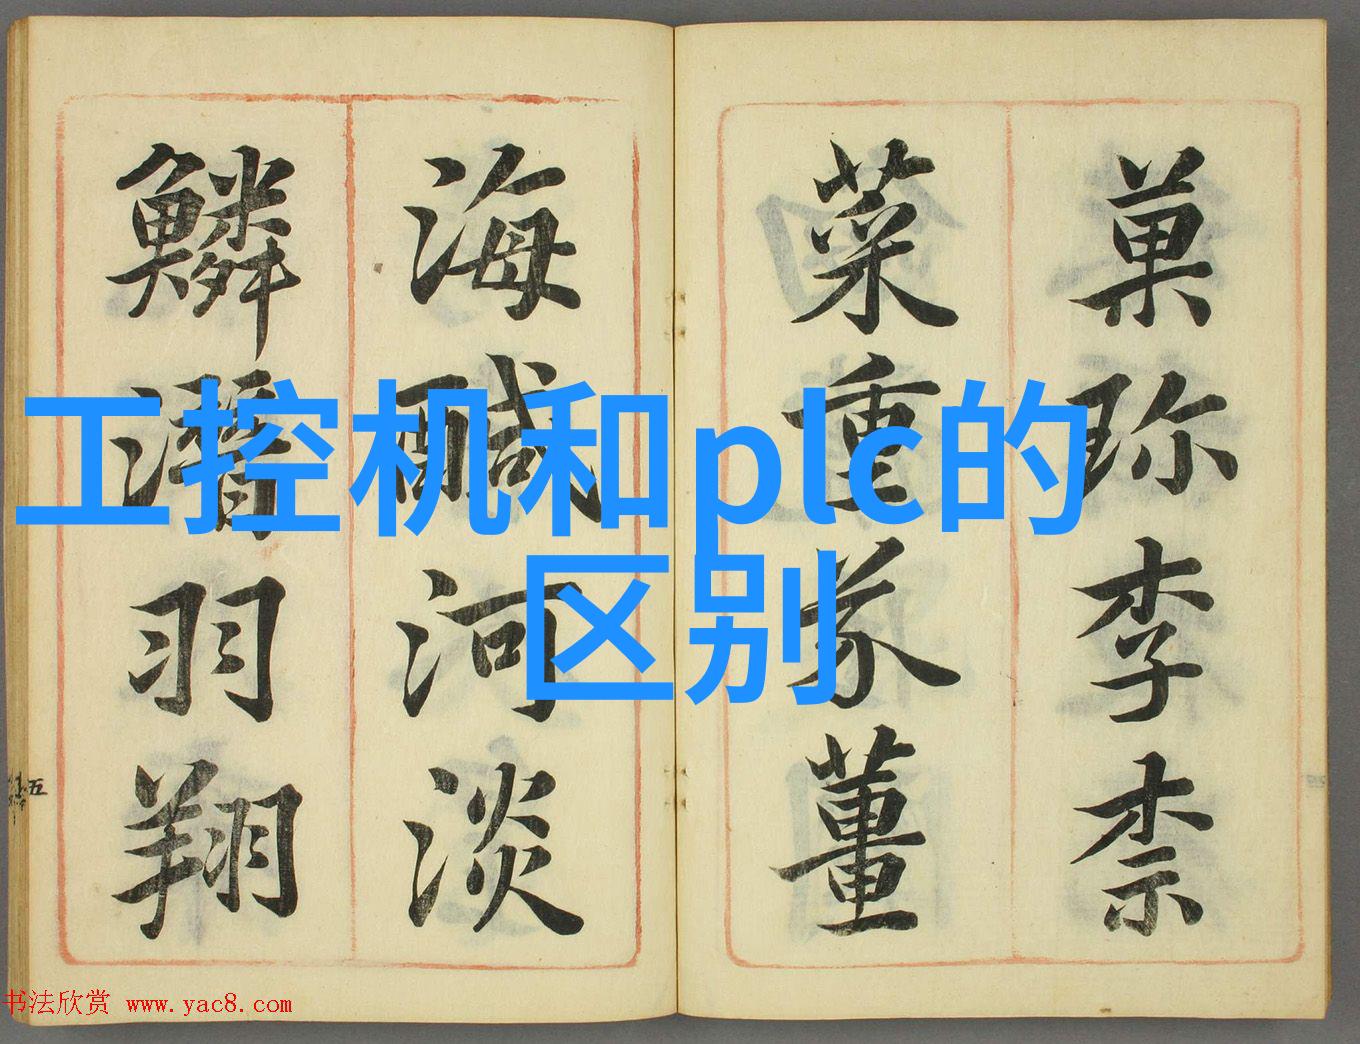 菓珎李柰
菜重芥薑
海醎河淡
鱗潛羽翔
五
工控机和plc的
区别
书法欣赏 www.yac8.com